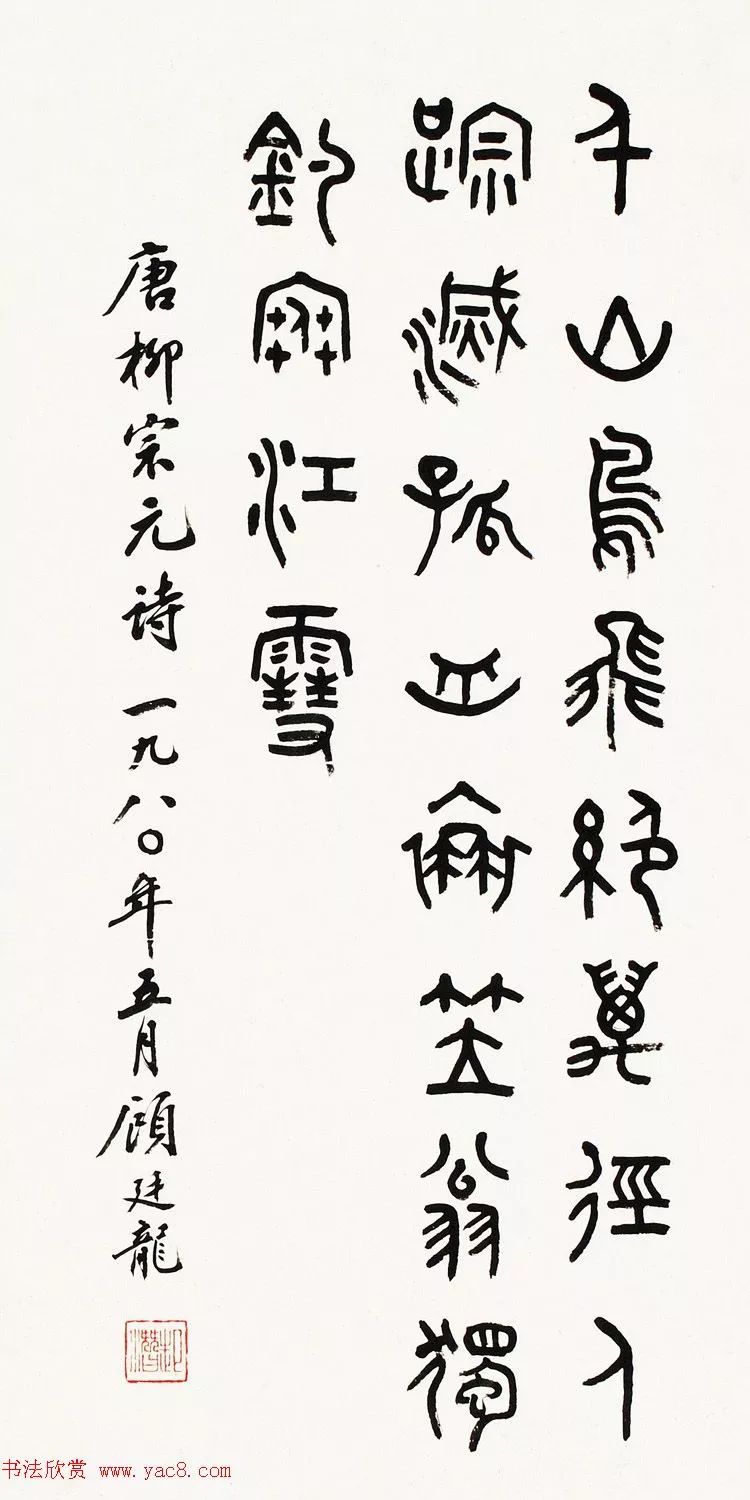 千山鳥飛絕萬徑人
踪滅孤舟蓑笠翁獨
釣寒江雪
唐柳宗元诗 一九八〇年五月顾廷龍
起潛
书法欣赏 www.yac8.com